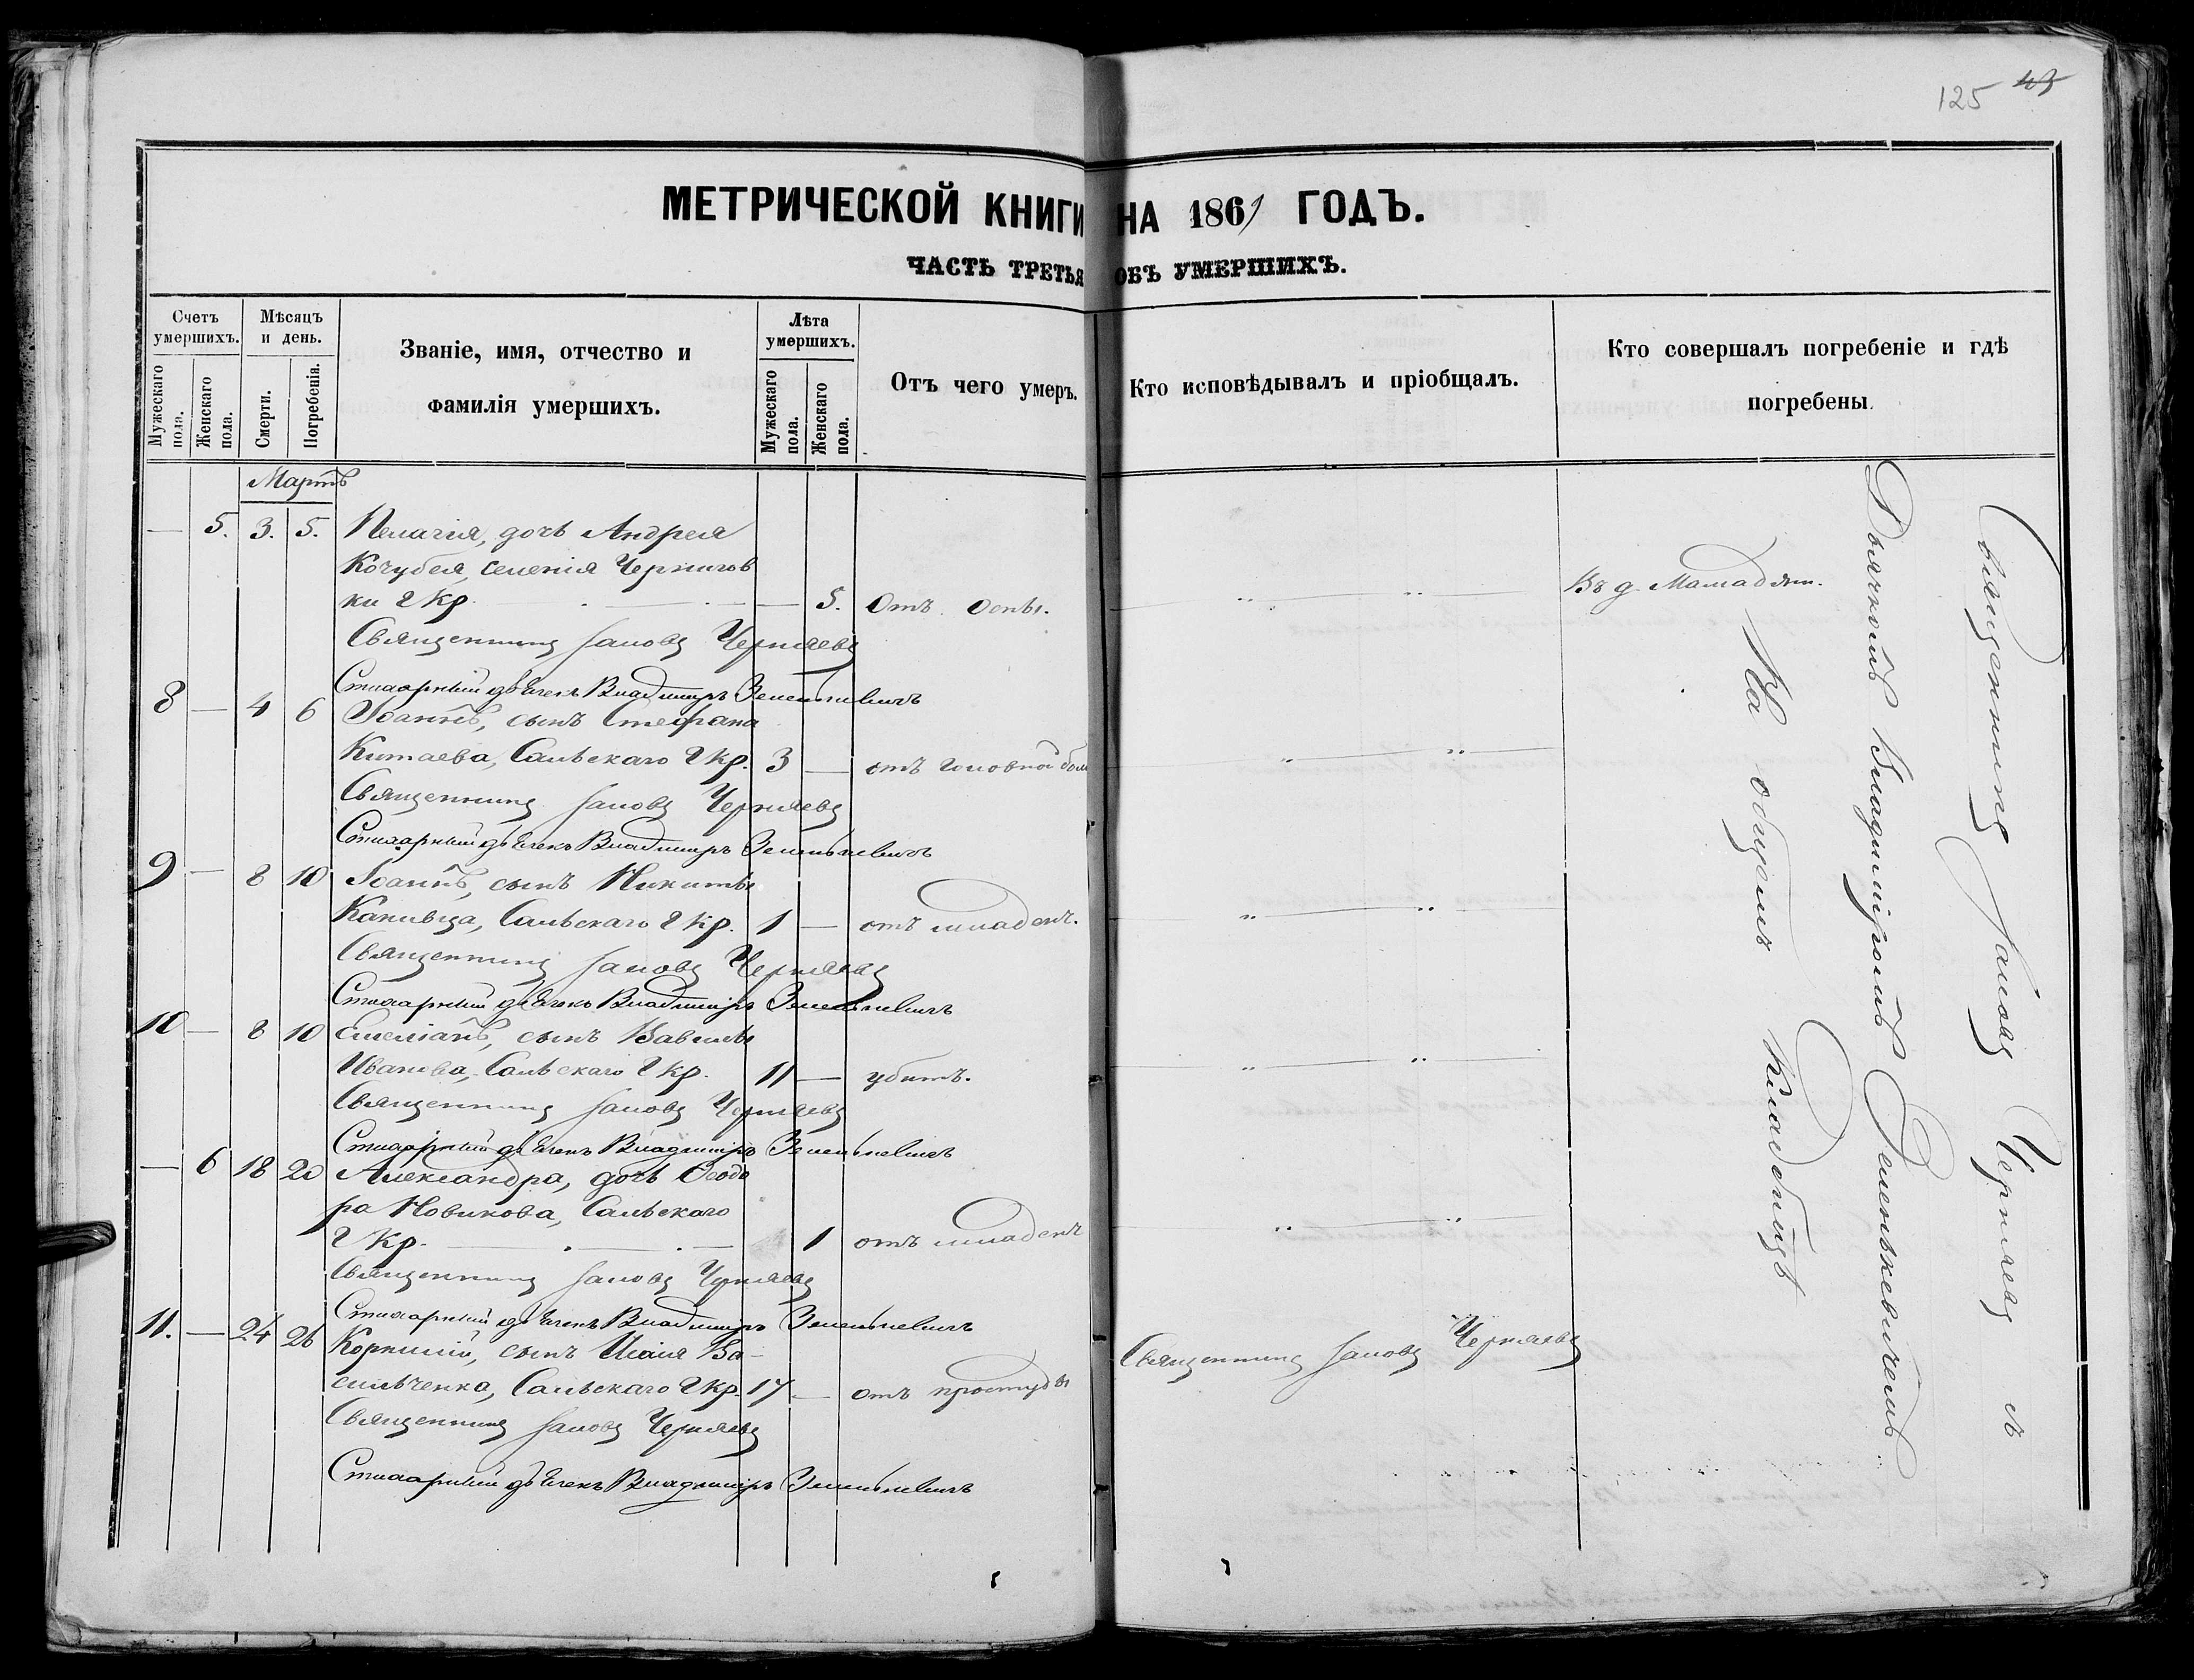 125 43
МЕТРИЧЕСКОЙ КНИГИ НА 1861 ГОДЪ.
ЧАСТЬ ТРЕТЬЯ ОБЪ УМЕРШИХЪ.
Счетъ умершихъ.
Мужескаго пола.
Женскаго пола.
Мѣсяцъ и день.
Смерти.
Погребенія.
Званіе, имя, отчество и
фамилія умершихъ.
Лѣта умершихъ.
Мужескаго пола.
Женскаго пола.
Отъ чего умеръ.
Кто исповѣдывалъ и пріобщалъ.
Кто совершалъ погребеніе и гдѣ
погребены.
Мартъ
— 5. 3. 5. Пелагія, дочь Андрея
Кочубея, селенія Чернигов
ки Г Кр. — 5. Отъ оспы. Въ д.
Священникъ Іаковъ Черняевъ
Стихарный дьячекъ Владиміръ Зеленкевичъ
8 — 4 6 Іоаннъ, сынъ Стефана
Китаева, Сальскаго Г Кр. 3 — отъ головной бол
Священникъ Іаковъ Черняевъ
Стихарный дьячекъ Владиміръ Зеленкевичъ
9 — 8 10 Іоаннъ, сынъ Никиты
Канивца, Сальскаго Г Кр. 1 — отъ младенч.
Священникъ Іаковъ Черняевъ
Стихарный дьячекъ Владиміръ Зеленкевичъ
10 — 8 10 Емеліанъ, сынъ Вавилы
Иванова, Сальскаго Г Кр. 11 — убитъ.
Священникъ Іаковъ Черняевъ
Стихарный дьячекъ Владиміръ Зеленкевичъ
— 6 18 20 Александра, дочь Ѳеодо
ра Новикова, Сальскаго
Г Кр. — 1 отъ младенч
Священникъ Іаковъ Черняевъ
Стихарный дьячекъ Владиміръ Зеленкевичъ
11. — 24 26 Корнилій, сынъ Иліи Ва-
сильченка, Сальскаго Г Кр. 17 — отъ простуды Священникъ Іаковъ Черняевъ
Священникъ Іаковъ Черняевъ
Стихарный дьячекъ Владиміръ Зеленкевичъ
Священникъ Іаковъ Черняевъ съ
Дьячкомъ Владиміромъ Зеленькевичемъ
На общемъ Кладбищѣ